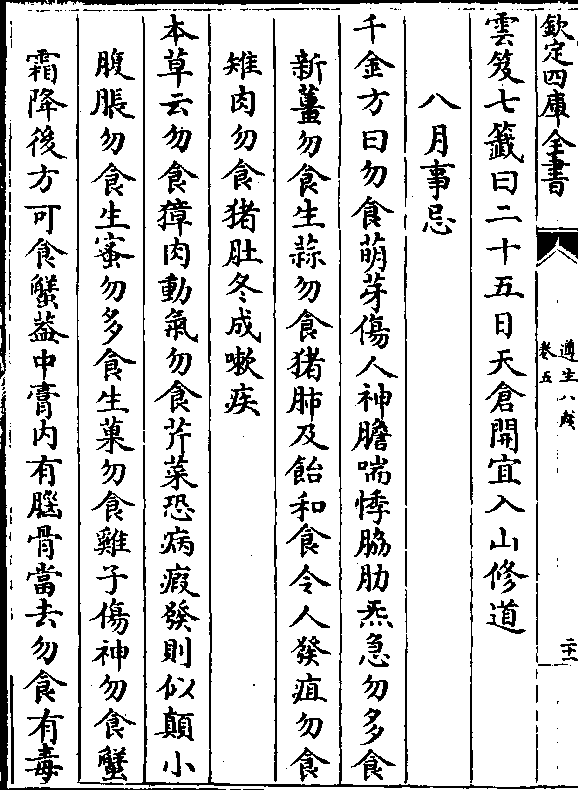 欽定四庫全書
遵生八牋
卷五
二十一
雲笈七籤曰二十五日天倉開宜入山修道
八月事忌
千金方曰勿食萌芽傷人神膽喘悸脇肋炁急勿多食
新薑勿食生蒜勿食猪肺及飴和食令人發疽勿食
雉肉勿食猪肚冬成嗽疾
本草云勿食獐肉動氣勿食芹菜恐病瘕發則似顛小
腹脹勿食生蜜勿多食生菓勿食雞子傷神勿食蟹
霜降後方可食蟹葢中膏内有腦骨當去勿食有毒